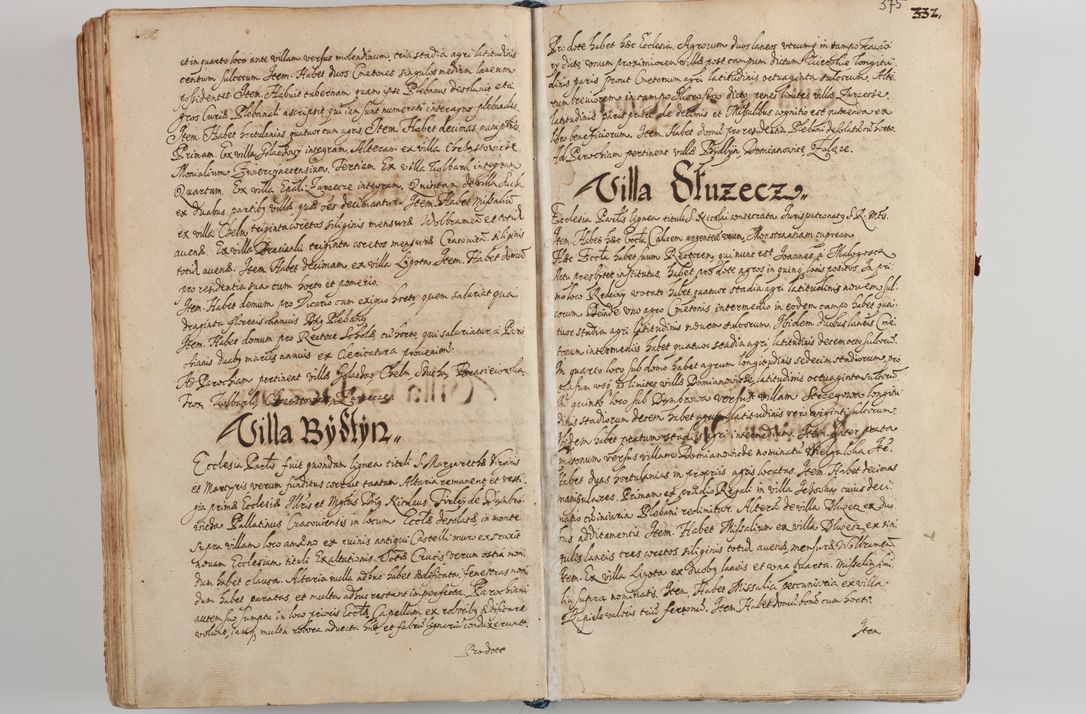 et in quarto loco ante villam versus molendinum, tria stadia agri latitudinis
centum sulcorum. Item. Habet duos Cmetones singulos medium laneum
possidentes. Item. Habuit tabernam quam ipse Plebanus desoluit et a
gros Curiae Plebanali ascripsit qui iam sunt numerati inter agros plebanales.
Item Habet hortulanias quatuor cum agris. Item. Habet decimas manipulares.
Primam. Ex villa integram. Alteram ex villa
Monialium Zwierzynecensium. Tertiam. Ex villa integram
Quartam. Ex villa Epali: Zarzecze integram, Quintam de villa
ex duabus partibus villae quae decimantur. Item. Habet Missalium
ex villa Chelm triginta coretos siliginis mensurae Wolbramen et totid
auenae. Ex villa triginta coretos mensurae Cracovien. siliginis
totid auenae. Item Habet decimam ex villa Ligota Item. Habet domum
pro residentia sua cum horto et pomerio.
Item. Habet domum pro Vicario cum exiguo horto, quem salariat qua
draginta florenis Plebanus
Item. Habet domum pro Rectore Scholae cum horto, qui salariatur a Paro
chianis duabus marcis annuis ex Clericatura
Ad Parochiam pertinent villae Chelm
Villa Bydlyn
Ecclesia Parlis fuit quondam lignea tituli S. Margarethae Virginis
et Martyris verum funditus corruit tantum Altaria remanent et vesti
gia primae Ecclesiae. Illris et Mgcus Dns Nicolaus Firley de Dabro
vica Pallatinus Cracoviensis in locum Ecclae desolatae in monte
supra villam loco amaeno ex ruinis antiqui Castelli muro exstruxit
nouam Ecclesiam tituli Exaltationis Crucis verum ostia non
dum habet clausa. Altaria nulla adhuc habet aedificata. fenestras non
dum habet paratas, et multa adhuc restant imperfecta. Parochiani
autem suo sumptu in loco prioris Ecclae Capellam ex roboribus aedificare
volunt, multa robora aduecta et fabrum lignarium conduxerunt.
Pro dote
375
332,
Pro dote habet haec Ecclesia, Agrorum duos laneos vtrumque in campo
dicto vnum proximiorem villae post campum dictum longitu
dinis paris prout Cmetonum agri latitudinis octuaginta sulcorum. Alte
rum breuiorem in campo dicto penes limites villae Zarzecze,
latitudinis paris priori de decimis et Missalibus cognitio est quaerenda ex
libro beneficiorum. Item. Habet domum pro residentia Plebani desolatam cum horto.
Ad Parochiam pertinent villae Bydlyn Domianowice Zalaze.
Villa Sluzecz
Ecclesia Parlis lignea tituli S. Nicolai consecrata, Iuris patronatus S. R. Mtis.
Item. Habet haec Eccla Calicem argenteum vnum, Monstrantiam cupream
Haec Eccla habet suum Rectorem, qui nunc est Ioannes a Malogoscz
Actu presbyter institutus, habet pro dote agros in quinque locis positos. In pri
mo loco Rediny vocato habet quatuor stadia agri latitudinis nouem sul
corum. Deinde vno agro Cmetonis intermedio in eodem campo habet qua
tuor stadia agri latitudinis nouem sulcorum. Ibidem duobus laneis Cme
tonum intermediis habet quatuor stadia agri latitudinis decem octo sulcorum.
In quarto loco sub domo habet agrum longitudinis sedecim stadiorum, pro
ad limites villae Domianowice latitudinis octuaginta sulcorum.
In quinto loco sub Dambrowa versus villam longitu
dinis stadiorum decem habet agrum latitudinis vero viginti sulcorum.
Ibidem habet pratum stadio agri intermedium. Item. inter prata
cmetonum versus villam Domianowice nominatum Item.
Habet duas hortulanias in propriis agris locatas. Item. Habet decimas
manipulares. Primam ex praedio Regali in villa cuius deci
matio Plebani redimitur. Alteram de villa ex duo
bus additamentis. Item. Habet Missalium ex villa ex sin
gulis laneis tres coretos siliginis totid auenae, mensurae Wolbramen.
Item. Ex villa Ligota ex duobus laneis et vna quarta. Missalia simi
lia supra nominatis. Item. Habet Missalia pecuniaria ex villa
valoris trium fertonum. Item. Habet domum bonam cum horto.
Item